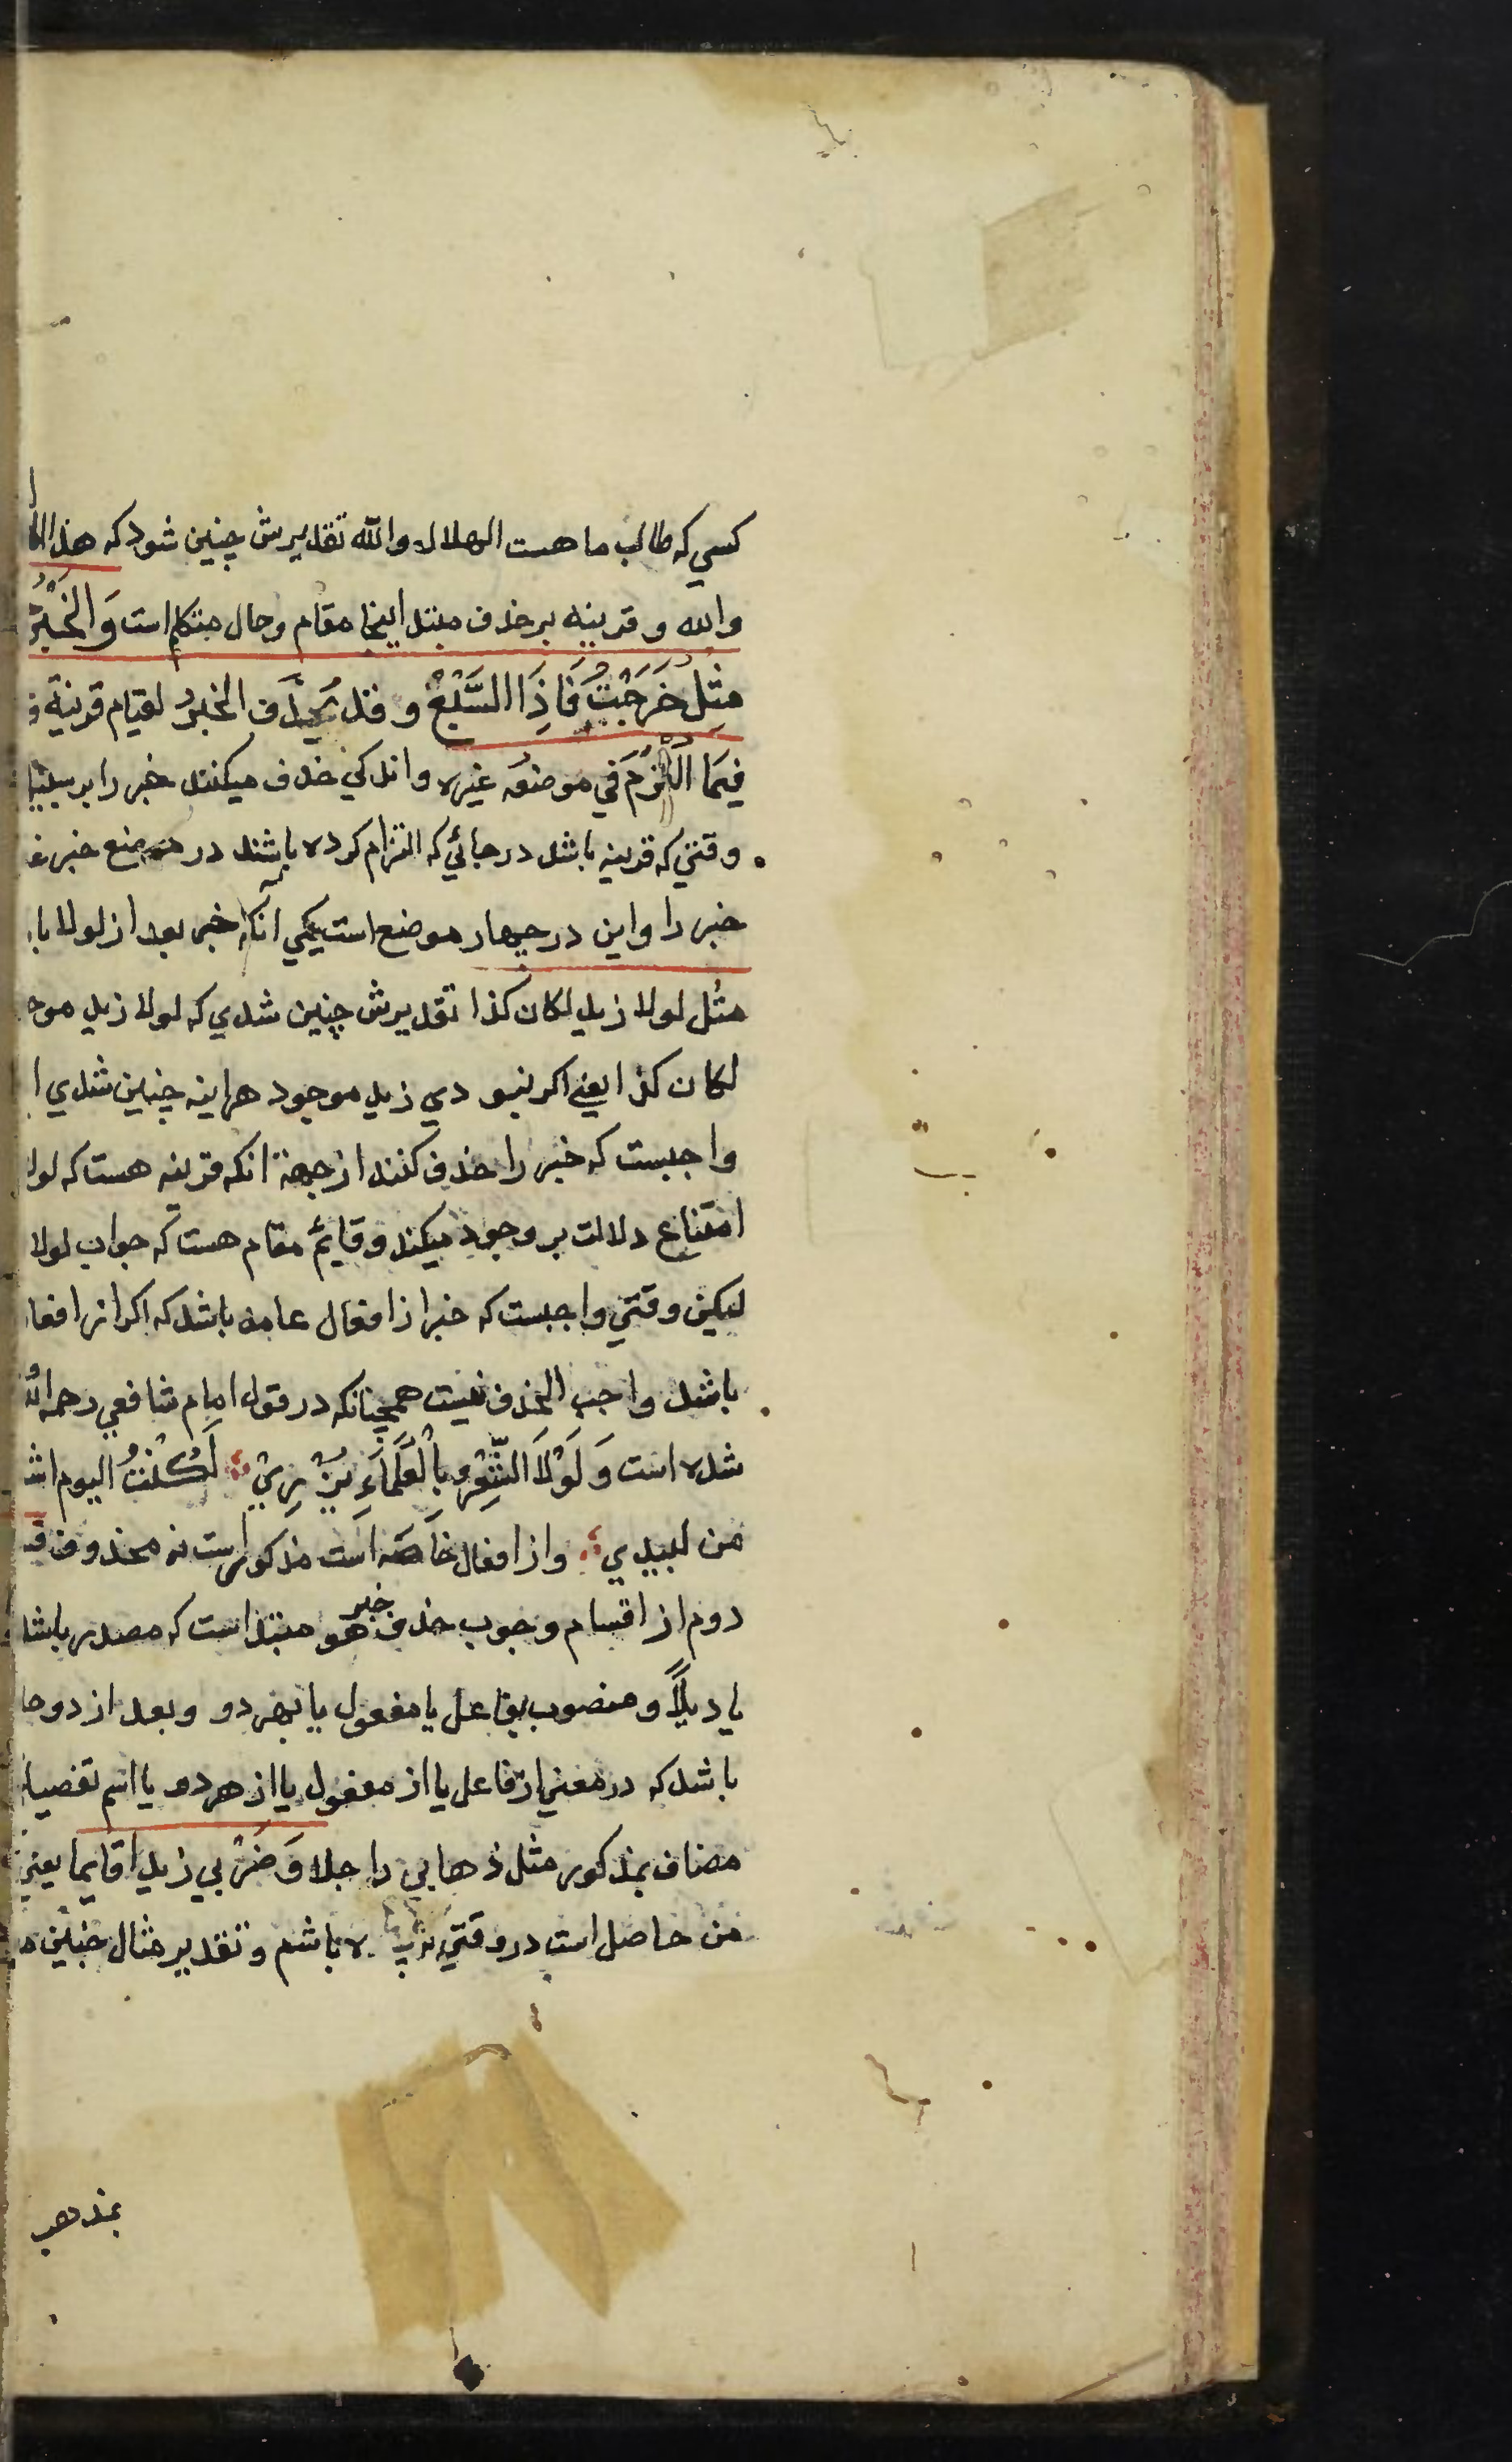 كسي كه طالب ما هست الهلال والله تقديرش چنين شود كه هذا
والله و قرينه بر حذف مبتدا اينجا مقام و حال متكلم است وَالْخَبَرُ
مِثْلُ خَرَجْتُ فَاِذَا السَّبُعُ و قد يُحذَف الخبرُ لقيام قرينة
فِيمَا الْتُزِمَ في موضعه غيره و اندكي حذف ميكنند خبر را بر سبيل
وقتي كه قرينه باشد در جائي كه التزام كرده باشند در موضع خبر
خبر را و اين در چهار موضع است يكي آنكه خبر بعد از لولا
مثل لولا زيد لكان كذا تقديرش چنين شدي كه لولا زيد
لكان كذا يعني اكر نبودي زيد موجود هراينه چنين شدي
واجبست كه خبر را حذف كنند از جهة انكه قرينه هست كه لولا
امتناع دلالت بر وجود ميكند و قايم مقام هست كه جواب لولا
ليكن وقتي واجبست كه خبر از افعال عامه باشد كه اكر از افعا
باشد واجب الحذف نيست همچنانكه در قول امام شافعي رحمه الله
شده است وَ لَوْلَا الشِّعْرُ بِالْعُلَمَاءِ يُزْرِيْ لَكُنْتُ اليوم
من لبيدي و از افعال خاصه است مذكورست نه محذوف
دوم از اقسام وجوب حذف خبر هو مبتدا است كه مصدر باشد
يا ديلاً و منصوب بفاعل يا مفعول يا بهردو و بعد از دو
باشد كه در معني از فاعل يا از مفعول يا از هردو يا اسم تفضيل
مضاف بمذكور مثل ذهابي راجلا وَ ضَرْبي زيدا قايما يعني
من حاصل است در وقتي باشم و تقدير مثال چنين
بمذهب